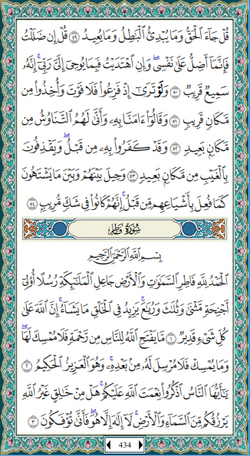 قُلْ جَآءَ ٱلْحَقُّ وَمَا يُبْدِئُ ٱلْبَٰطِلُ وَمَا يُعِيدُ ٤٩ قُلْ إِن ضَلَلْتُ
فَإِنَّمَآ أَضِلُّ عَلَىٰ نَفْسِى ۖ وَإِنِ ٱهْتَدَيْتُ فَبِمَا يُوحِىٓ إِلَىَّ رَبِّىٓ ۚ إِنَّهُۥ
سَمِيعٌ قَرِيبٌ ٥٠ وَلَوْ تَرَىٰٓ إِذْ فَزِعُوا۟ فَلَا فَوْتَ وَأُخِذُوا۟ مِن
مَّكَانٍ قَرِيبٍ ٥١ وَقَالُوٓا۟ ءَامَنَّا بِهِۦ وَأَنَّىٰ لَهُمُ ٱلتَّنَاوُشُ مِن
مَّكَانٍۭ بَعِيدٍ ٥٢ وَقَدْ كَفَرُوا۟ بِهِۦ مِن قَبْلُ ۖ وَيَقْذِفُونَ
بِٱلْغَيْبِ مِن مَّكَانٍۭ بَعِيدٍ ٥٣ وَحِيلَ بَيْنَهُمْ وَبَيْنَ مَا يَشْتَهُونَ
كَمَا فُعِلَ بِأَشْيَاعِهِم مِّن قَبْلُ ۚ إِنَّهُمْ كَانُوا۟ فِى شَكٍّ مُّرِيبٍۭ ٥٤
سُورَةُ فَاطِرٍ
بِسْمِ ٱللَّهِ ٱلرَّحْمَٰنِ ٱلرَّحِيمِ
ٱلْحَمْدُ لِلَّهِ فَاطِرِ ٱلسَّمَٰوَٰتِ وَٱلْأَرْضِ جَاعِلِ ٱلْمَلَٰٓئِكَةِ رُسُلًا أُو۟لِىٓ
أَجْنِحَةٍ مَّثْنَىٰ وَثُلَٰثَ وَرُبَٰعَ ۚ يَزِيدُ فِى ٱلْخَلْقِ مَا يَشَآءُ ۚ إِنَّ ٱللَّهَ عَلَىٰ
كُلِّ شَىْءٍ قَدِيرٌ ١ مَّا يَفْتَحِ ٱللَّهُ لِلنَّاسِ مِن رَّحْمَةٍ فَلَا مُمْسِكَ لَهَا ۖ
وَمَا يُمْسِكْ فَلَا مُرْسِلَ لَهُۥ مِنۢ بَعْدِهِۦ ۚ وَهُوَ ٱلْعَزِيزُ ٱلْحَكِيمُ ٢
يَٰٓأَيُّهَا ٱلنَّاسُ ٱذْكُرُوا۟ نِعْمَتَ ٱللَّهِ عَلَيْكُمْ ۚ هَلْ مِنْ خَٰلِقٍ غَيْرُ ٱللَّهِ
يَرْزُقُكُم مِّنَ ٱلسَّمَآءِ وَٱلْأَرْضِ ۚ لَآ إِلَٰهَ إِلَّا هُوَ ۖ فَأَنَّىٰ تُؤْفَكُونَ ٣
434